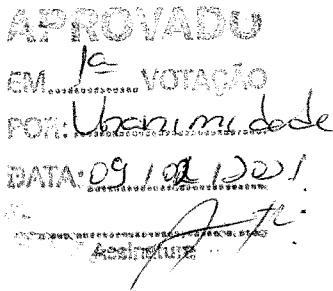 APROVADO
EM 1ª VOTAÇÃO
POR: Unanimidade
DATA: 09/02/2021
Assinatura